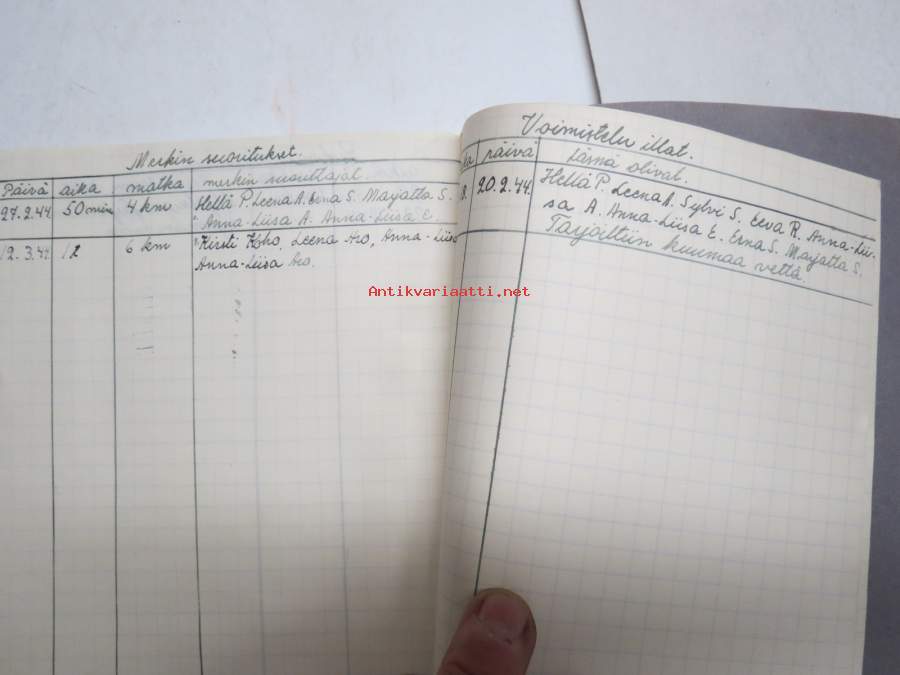 Merkin suoritukset.
Päivä aika matka merkin suorittajat
27.2.44. 50 min 4 km Hellä P. Leena A. Erna S. Marjatta S.
Anna-Liisa A. Anna-Liisa E.
12.3.44 12 6 km Kirsti Koho, Leena Aro, Anna-Liisa
Anna-Liisa Aro.
Voimistelu illat.
päivä läsnä olivat.
8. 20.2.44. Hellä P. Leena A. Sylvi S. Eeva R. Anna-Lii-
sa A. Anna-Liisa E. Erna S. Marjatta S.
Tarjoiltiin kuumaa vettä.
Antikvariaatti.net